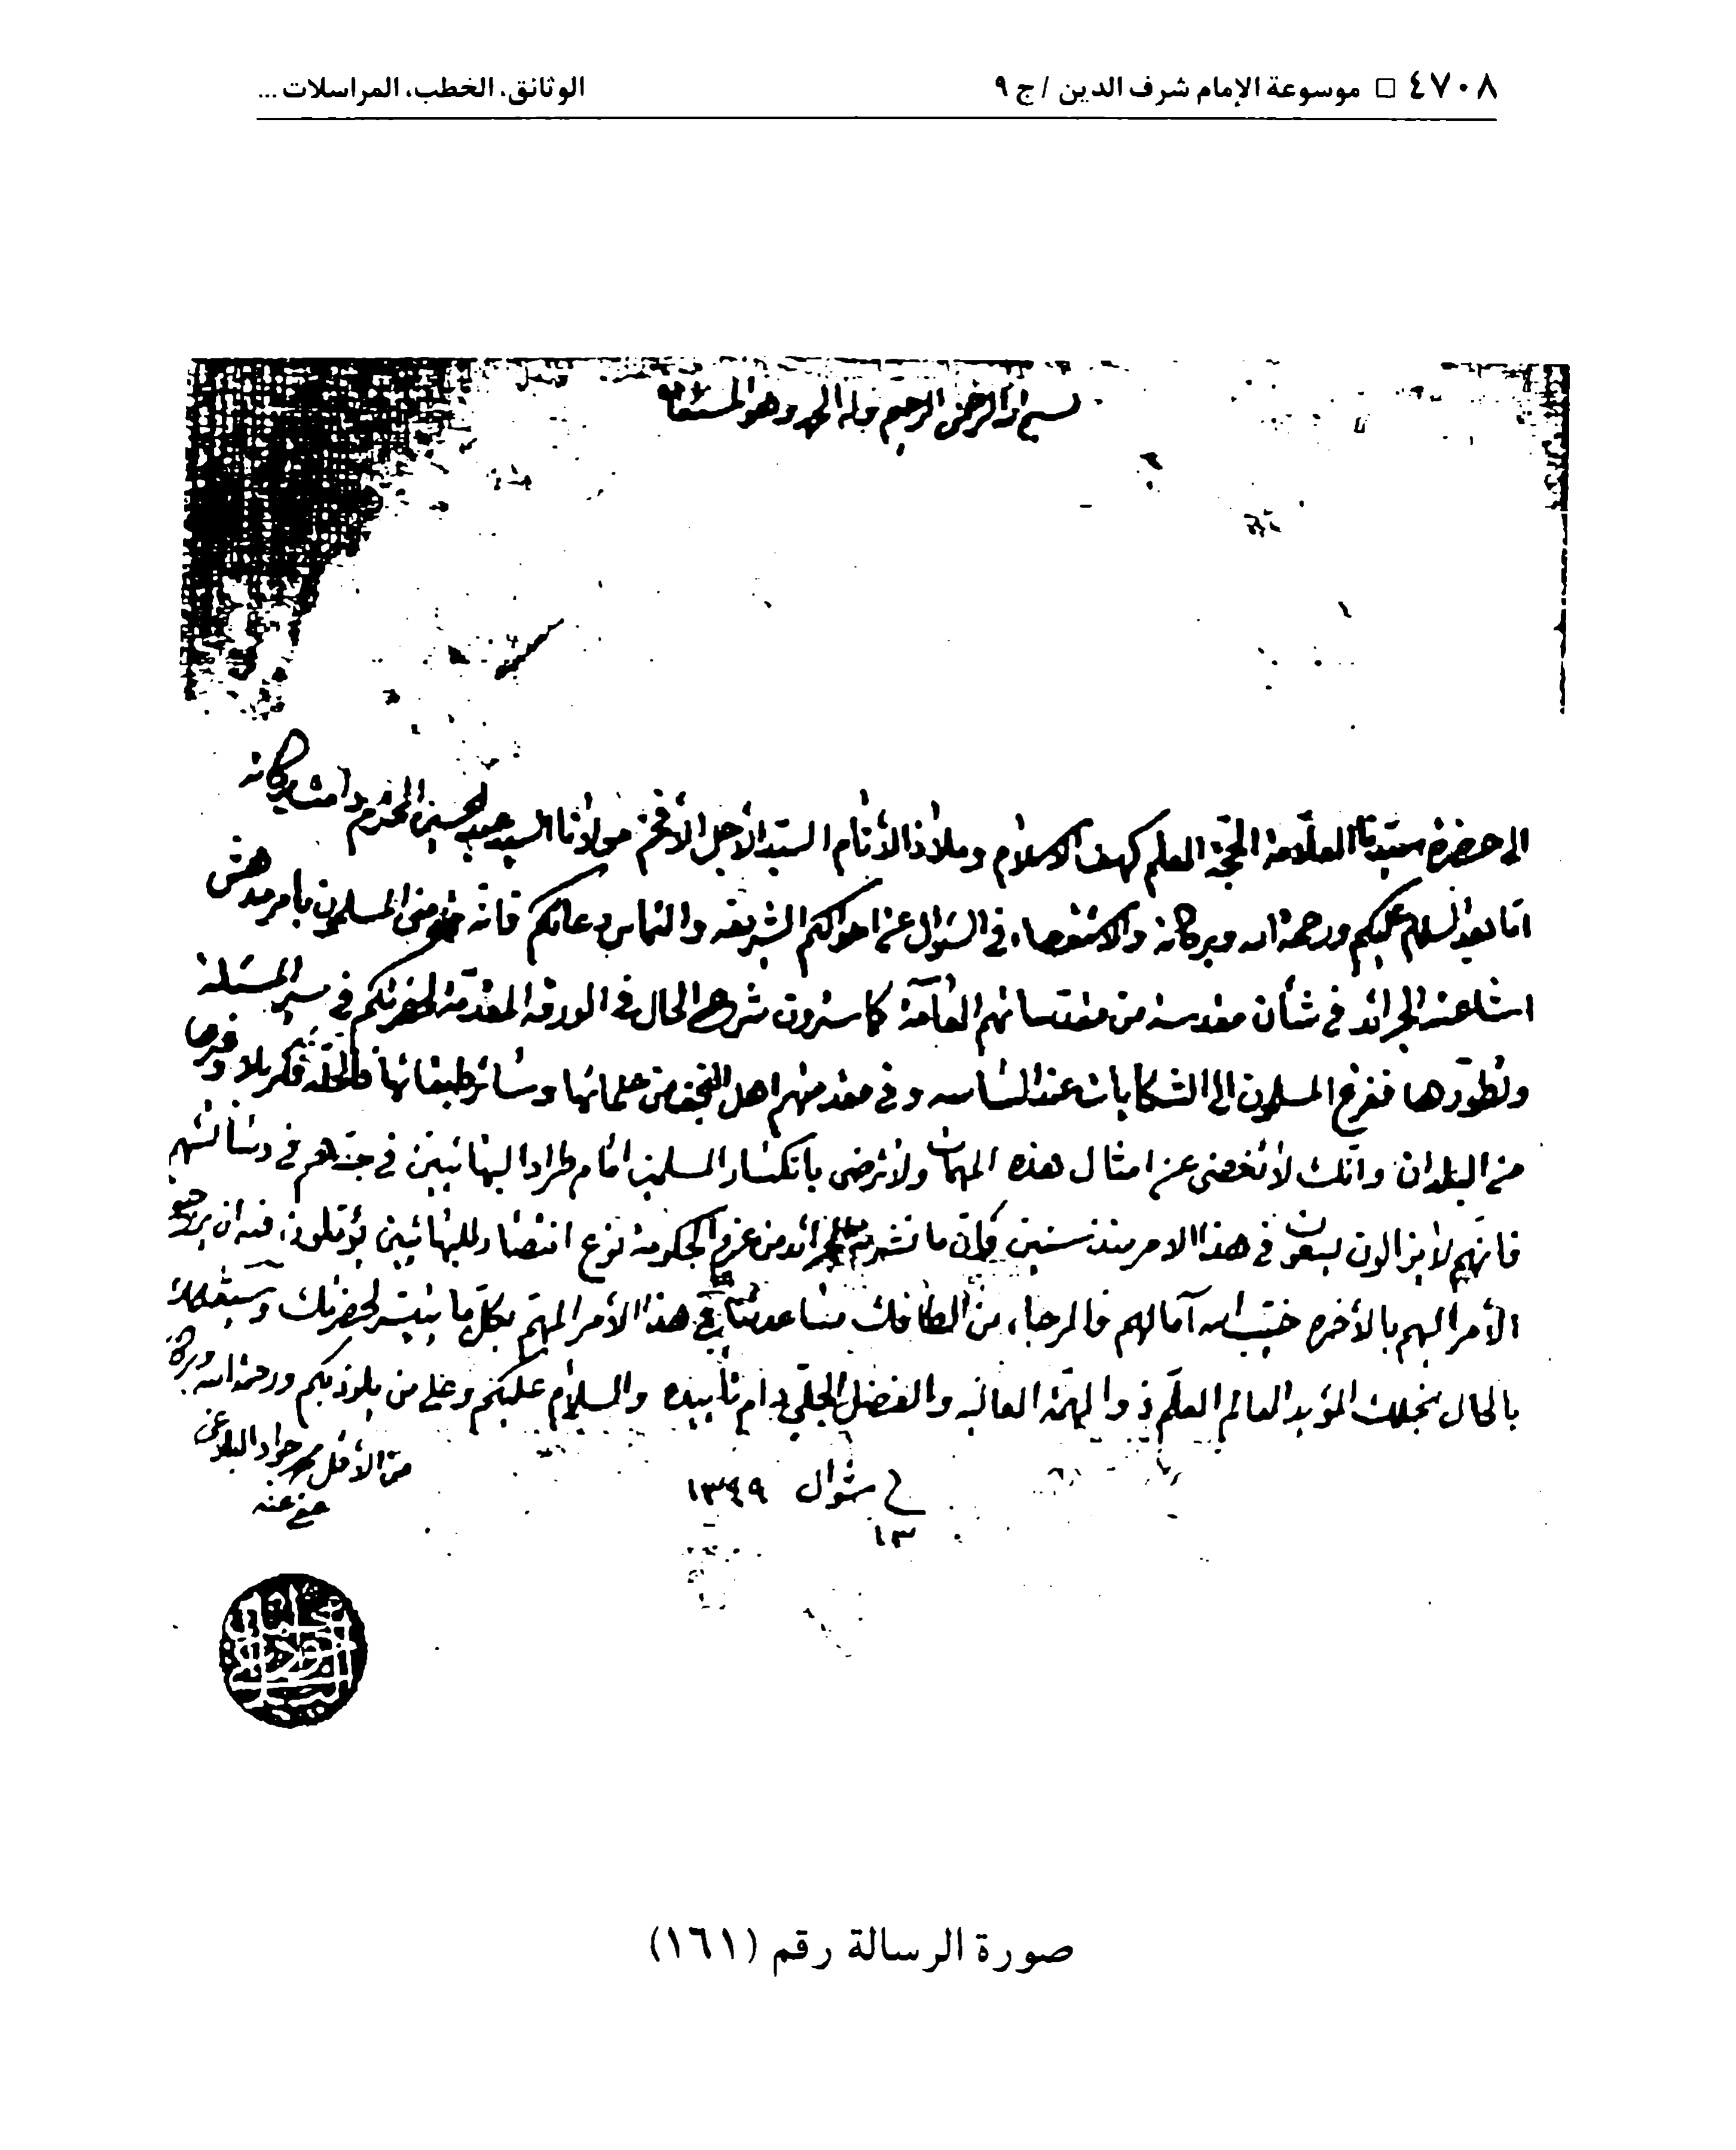 ٤٧٠٨ □ موسوعة الإمام شرف الدين / ج ٩
الوثائق، الخطب، المراسلات ...
بسم الله الرحمن الرحيم وله الحمد وهو المستعان
الى حضرة سيدنا العلامة الحجة العلم كهف الاسلام وملاذ الأنام السيد الأجل الأفخم مولانا السيد عبد الحسين المحترم دامت بركاته
اما بعد السلام عليكم ورحمة الله وبركاته والاستقصاء في السؤال عن احوالكم الشريفة والتماس دعائكم فانه المسلمون بامر مدهش
اشاعته الجرائد في شأن مقدسة من مقدساتهم العامة كما سترون شرح الحال في الورقة المقدمة لحضرتكم في سير المسئلة
وتطورها ففزع المسلمون الى الشكايات عند الساسة وفي مقدمتهم اهل النجف من علمائها وسائر طبقاتها فالحلة فكربلا وغيرها
من البلدان وانك لا تغضي عن امثال هذه المهمات ولا ترضى بانكسار المسلمين امام طراد البهائيين في جدهم في دسائسهم
فانهم لا يزالون يسعون في هذا الامر منذ سنين فان ما تنشره الجرائد من عزم الحكومة نوع انتصار للبهائيين يؤملون فيه ان يرجع
الأمر اليهم بالأخرة خيب الله آمالهم فالمرجاء من الطافك مساعدتنا في هذا الأمر المهم بكل ما يتيسر لحضرتك
بالحال نجلك المؤيد العالم العلم ذو الهمة العالية والفضل الجلي دام تأييده والسلام عليكم وعلى من يلوذ بكم ورحمة الله وبركاته
من الأقل محمد جواد البلاغي
عفي عنه
في ١٣ شوال ١٣٤٩
صورة الرسالة رقم (١٦١)